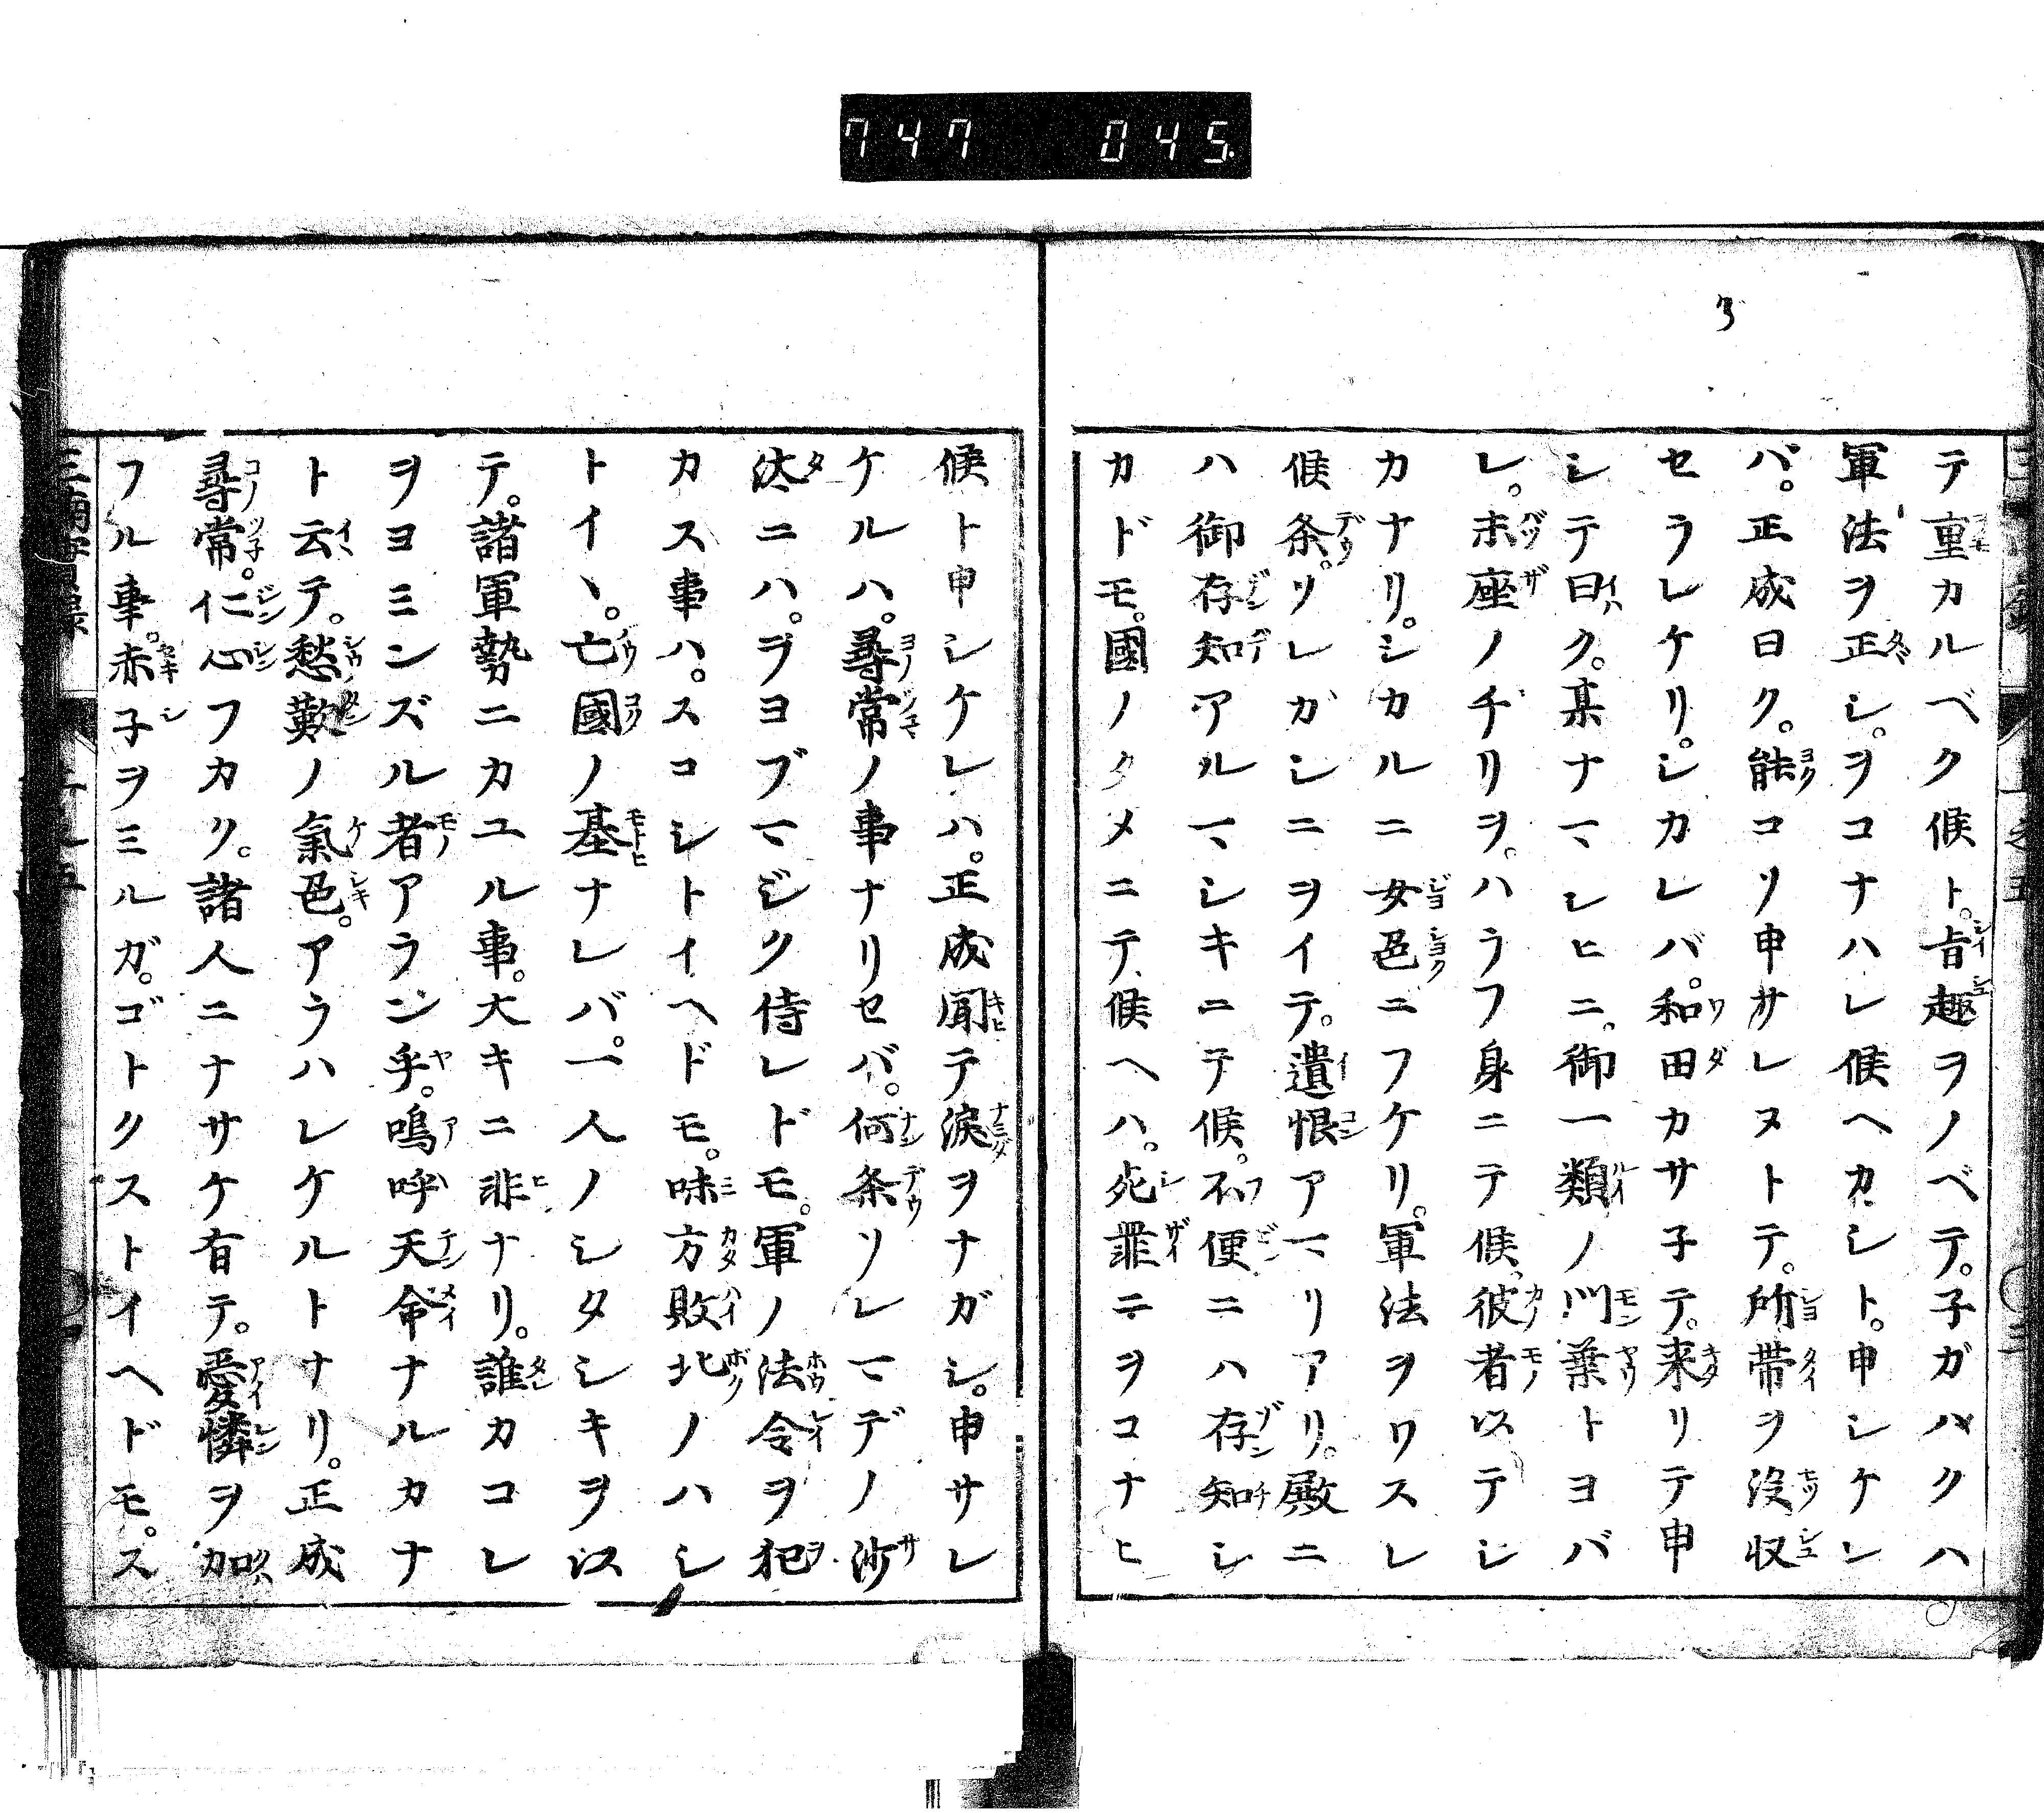 747 045.
テ重カルベク候ト。旨趣ヲノベテ。子ガハクハ
軍法ヲ正シ。ヲコナハレ候ヘカシト。申シケレ
バ。正成曰ク。能コソ申サレヌトテ。所帯ヲ没収
セラレケリ。シカレバ。和田カサ子テ。来リテ申
シテ曰ク。某ナマシヒニ。御一類ノ門葉トヨバ
レ。末座ノチリヲ。ハラフ身ニテ候。彼者以テシ
カナリ。シカルニ女色ニフケリ。軍法ヲワスレ
候条。ソレガシニヲイテ。遺恨アマリアリ。殿ニ
ハ御存知アルマシキニテ候。不便ニハ存知シ
カドモ。國ノタメニテ候ヘハ。死罪ニヲコナヒ
候ト申シケレハ。正成聞テ涙ヲナガシ。申サレ
ケルハ。尋常ノ事ナリセバ。何条ソレマデノ沙
汰ニハ。ヲヨブマジク侍レドモ。軍ノ法令ヲ犯
カス事ハ。スコシトイヘドモ。味方敗北ノハシ
トイヽ。亡國ノ基ナレバ。一人ノシタシキヲ以
テ。諸軍勢ニカユル事。大キニ非ナリ。誰カコレ
ヲヨミンズル者アラン乎。鳴呼天命ナルカナ
ト云テ。愁歎ノ氣色。アラハレケルトナリ。正成
尋常。仁心フカク。諸人ニナサケ有テ。愛憐ヲ加
フル事。赤子ヲミルガ。ゴトクストイヘドモ。ス